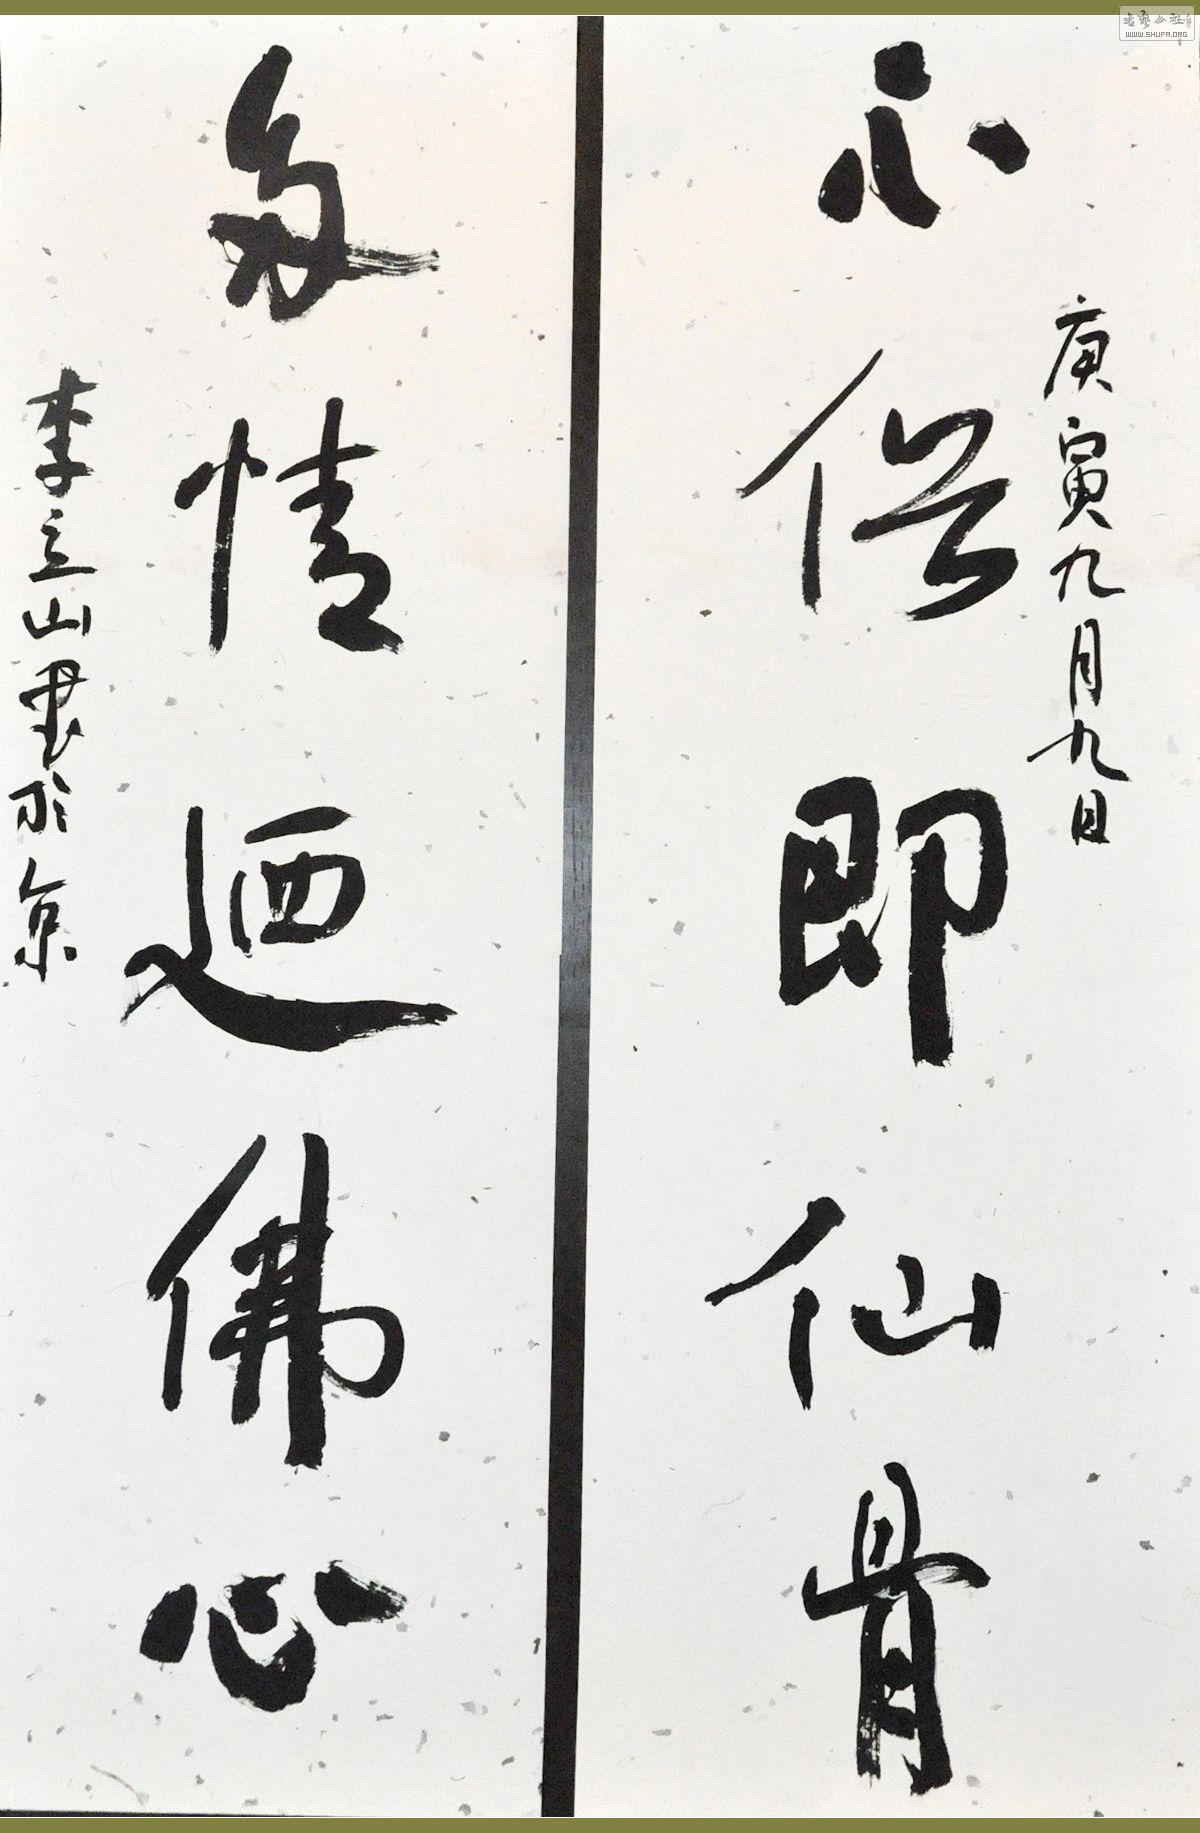 庚寅九月九日
不俗即仙骨
多情迺佛心
李立山书於京
书艺公社
WWW.SHUFA.ORG